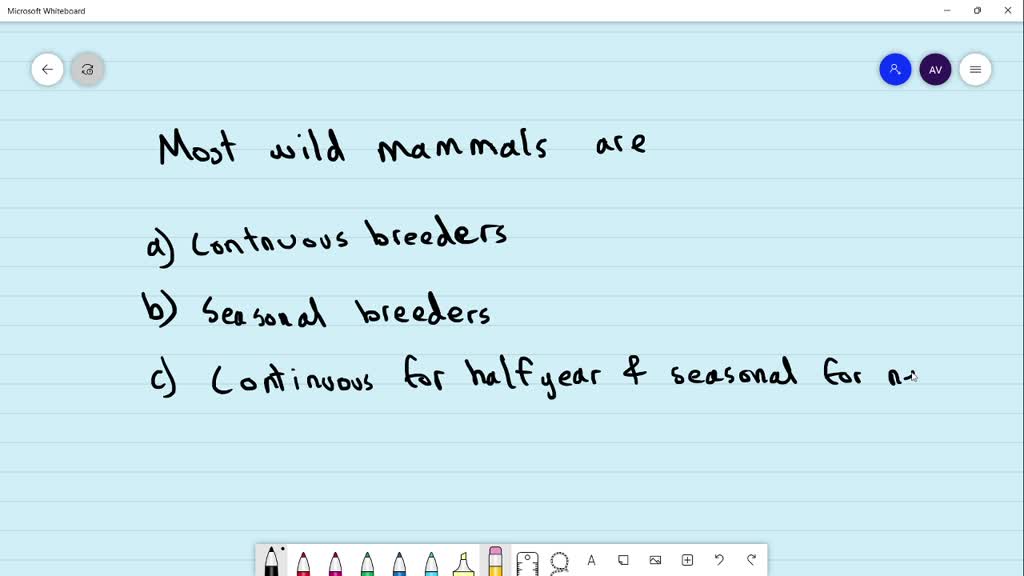 Microsoft Whiteboard
AV
Most wild mammals are
a) contnuous breeders
b) seasonal breeders
c) Continuous for half year & seasonal for
A